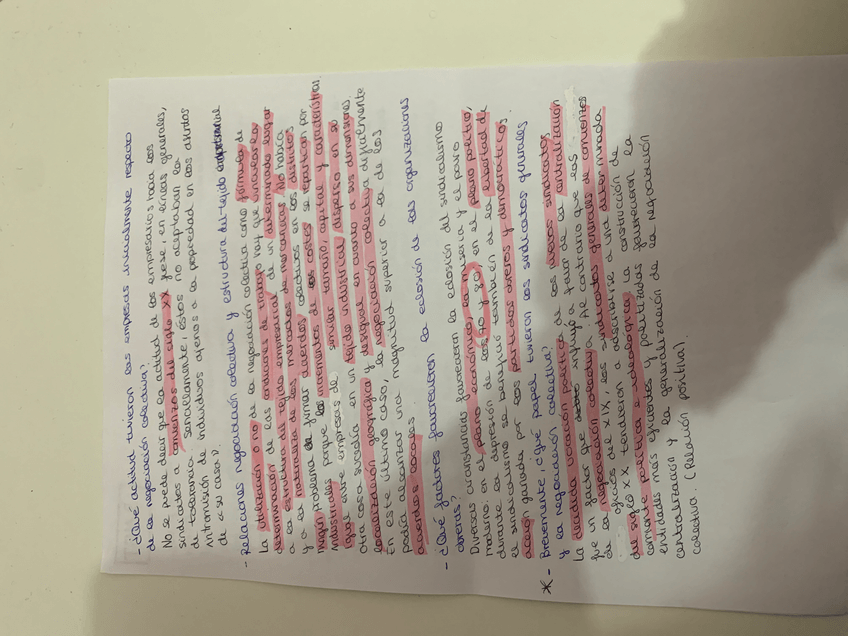 - ¿Qué actitud tuvieron las empresas inicialmente respecto
de la negociación colectiva?
No se puede decir que la actitud de los empresarios hacia los
sindicatos a comienzos del siglo XX fuese, en líneas generales,
de tolerancia. Sencillamente, éstos no aceptaban la
intromisión de individuos ajenos a la propiedad en los asuntos
de «su casa».
- Relaciones negociación colectiva y estructura del tejido empresarial
La utilización o no de la negociación colectiva como fórmula de
determinación de las condiciones de trabajo hay que vincularla
a la estructura del tejido empresarial de un determinado lugar
y a la naturaleza de los mercados de mercancías. No había
ningún problema firmar acuerdos colectivos en los distritos
industriales porque los incrementos de los costes se repartían por
igual entre empresas de similar tamaño, capital y características
Otra cosa sucedía en un tejido industrial disperso en su
localización geográfica y desigual en cuanto a sus dimensiones.
En este último caso, la negociación colectiva difícilmente
podía alcanzar una magnitud superior a la de los
acuerdos locales
- ¿Qué factores favorecieron la eclosión de las organizaciones
obreras?
Diversas circunstancias favorecieron la eclosión del sindicalismo
moderno: en el plano económico, la miseria y el paro
durante la depresión de los 70 y 80; en el plano político,
el sindicalismo se benefició también de la libertad de
acción ganada por los partidos obreros y democráticos.
* - Brevemente, ¿Qué papel tuvieron los sindicatos generales
y la negociación colectiva?
La decidida vocación política de los nuevos sindicatos
fue un factor que influyó a favor de la centralización
de la negociación colectiva. Al contrario que los
oficios del XIX, los sindicatos generales de comienzos
del siglo XX tendieron a adscribirse a una determinada
corriente política e ideológica. La construcción de
entidades más eficientes y politizadas favorecieron la
centralización y la generalización de la negociación
colectiva. (Relación positiva).